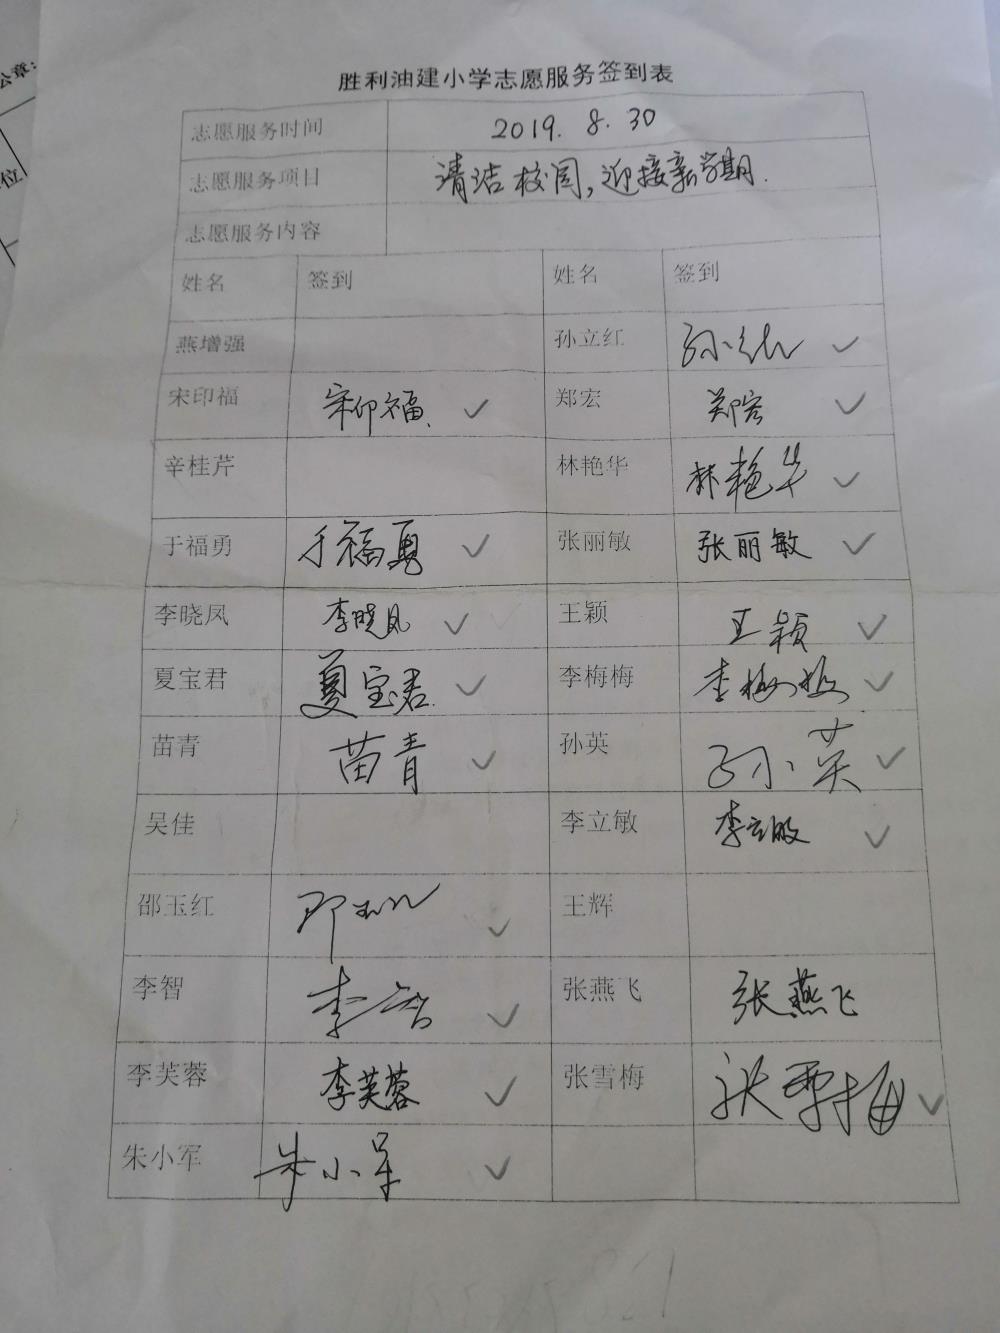 公章:
位
胜利油建小学志愿服务签到表
志愿服务时间 2019. 8. 30
志愿服务项目 清洁校园,迎接新学期.
志愿服务内容
姓名 签到 姓名 签到
燕增强 孙立红 孙立红 ✓
宋印福 宋印福 ✓ 郑宏 郑宏 ✓
辛桂芹 林艳华 林艳华 ✓
于福勇 于福勇 ✓ 张丽敏 张丽敏 ✓
李晓凤 李晓凤 ✓ 王颖 王颖 ✓
夏宝君 夏宝君 ✓ 李梅梅 李梅梅 ✓
苗青 苗青 ✓ 孙英 孙英 ✓
吴佳 李立敏 李立敏 ✓
邵玉红 邵玉红 ✓ 王辉
李智 李智 ✓ 张燕飞 张燕飞
李芙蓉 李芙蓉 ✓ 张雪梅 张雪梅 ✓
朱小军 朱小军 ✓